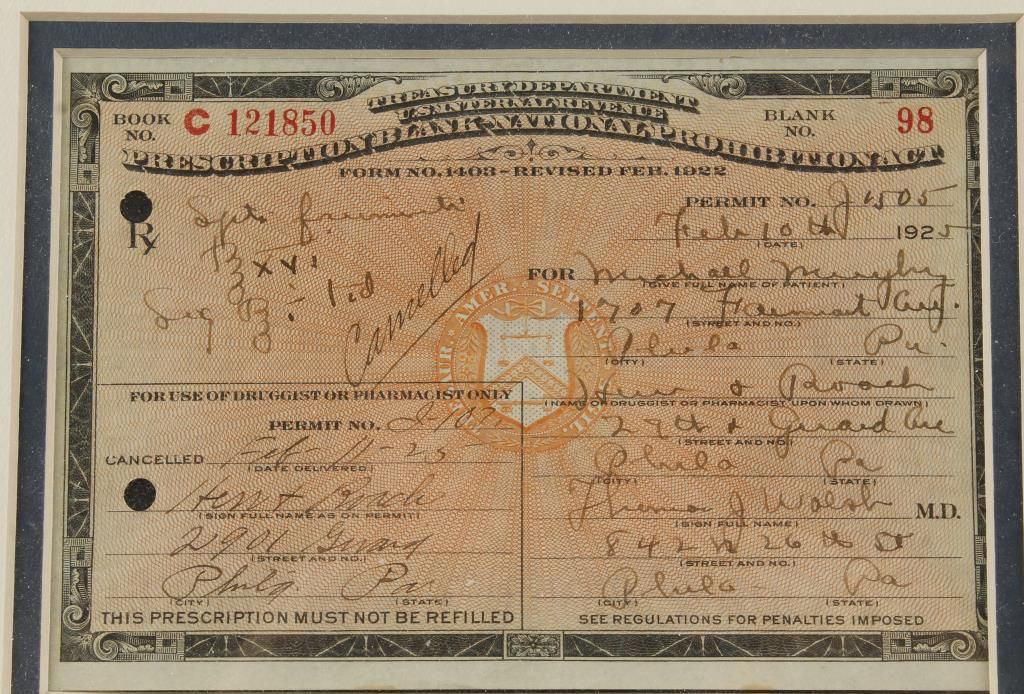 TREASURY DEPARTMENT
U.S. INTERNAL REVENUE
BOOK NO. C 121850
BLANK NO. 98
PRESCRIPTION BLANK-NATIONAL PROHIBITION ACT
FORM NO. 1403-REVISED FEB. 1922
PERMIT NO. J 1505
Rx
Spts frumenti
Feb 10th 1925
(DATE)
℥ XVI
Cancelled
FOR Michael
(GIVE FULL NAME OF PATIENT)
Sig ℥ - tid
1707 Fairmount Ave.
(STREET AND NO.)
Phila Pa.
(CITY) (STATE)
FOR USE OF DRUGGIST OR PHARMACIST ONLY
& Roach
(NAME OF DRUGGIST OR PHARMACIST UPON WHOM DRAWN)
PERMIT NO.
29th & Girard Ave
(STREET AND NO.)
CANCELLED Feb 11-25
(DATE DELIVERED)
Phila Pa
(CITY) (STATE)
(SIGN FULL NAME AS ON PERMIT)
Thomas J Walsh M.D.
(SIGN FULL NAME)
2901 Girard
(STREET AND NO.)
842 N 26th St
(STREET AND NO.)
Phila. Pa
(CITY) (STATE)
Phila Pa
(CITY) (STATE)
THIS PRESCRIPTION MUST NOT BE REFILLED
SEE REGULATIONS FOR PENALTIES IMPOSED